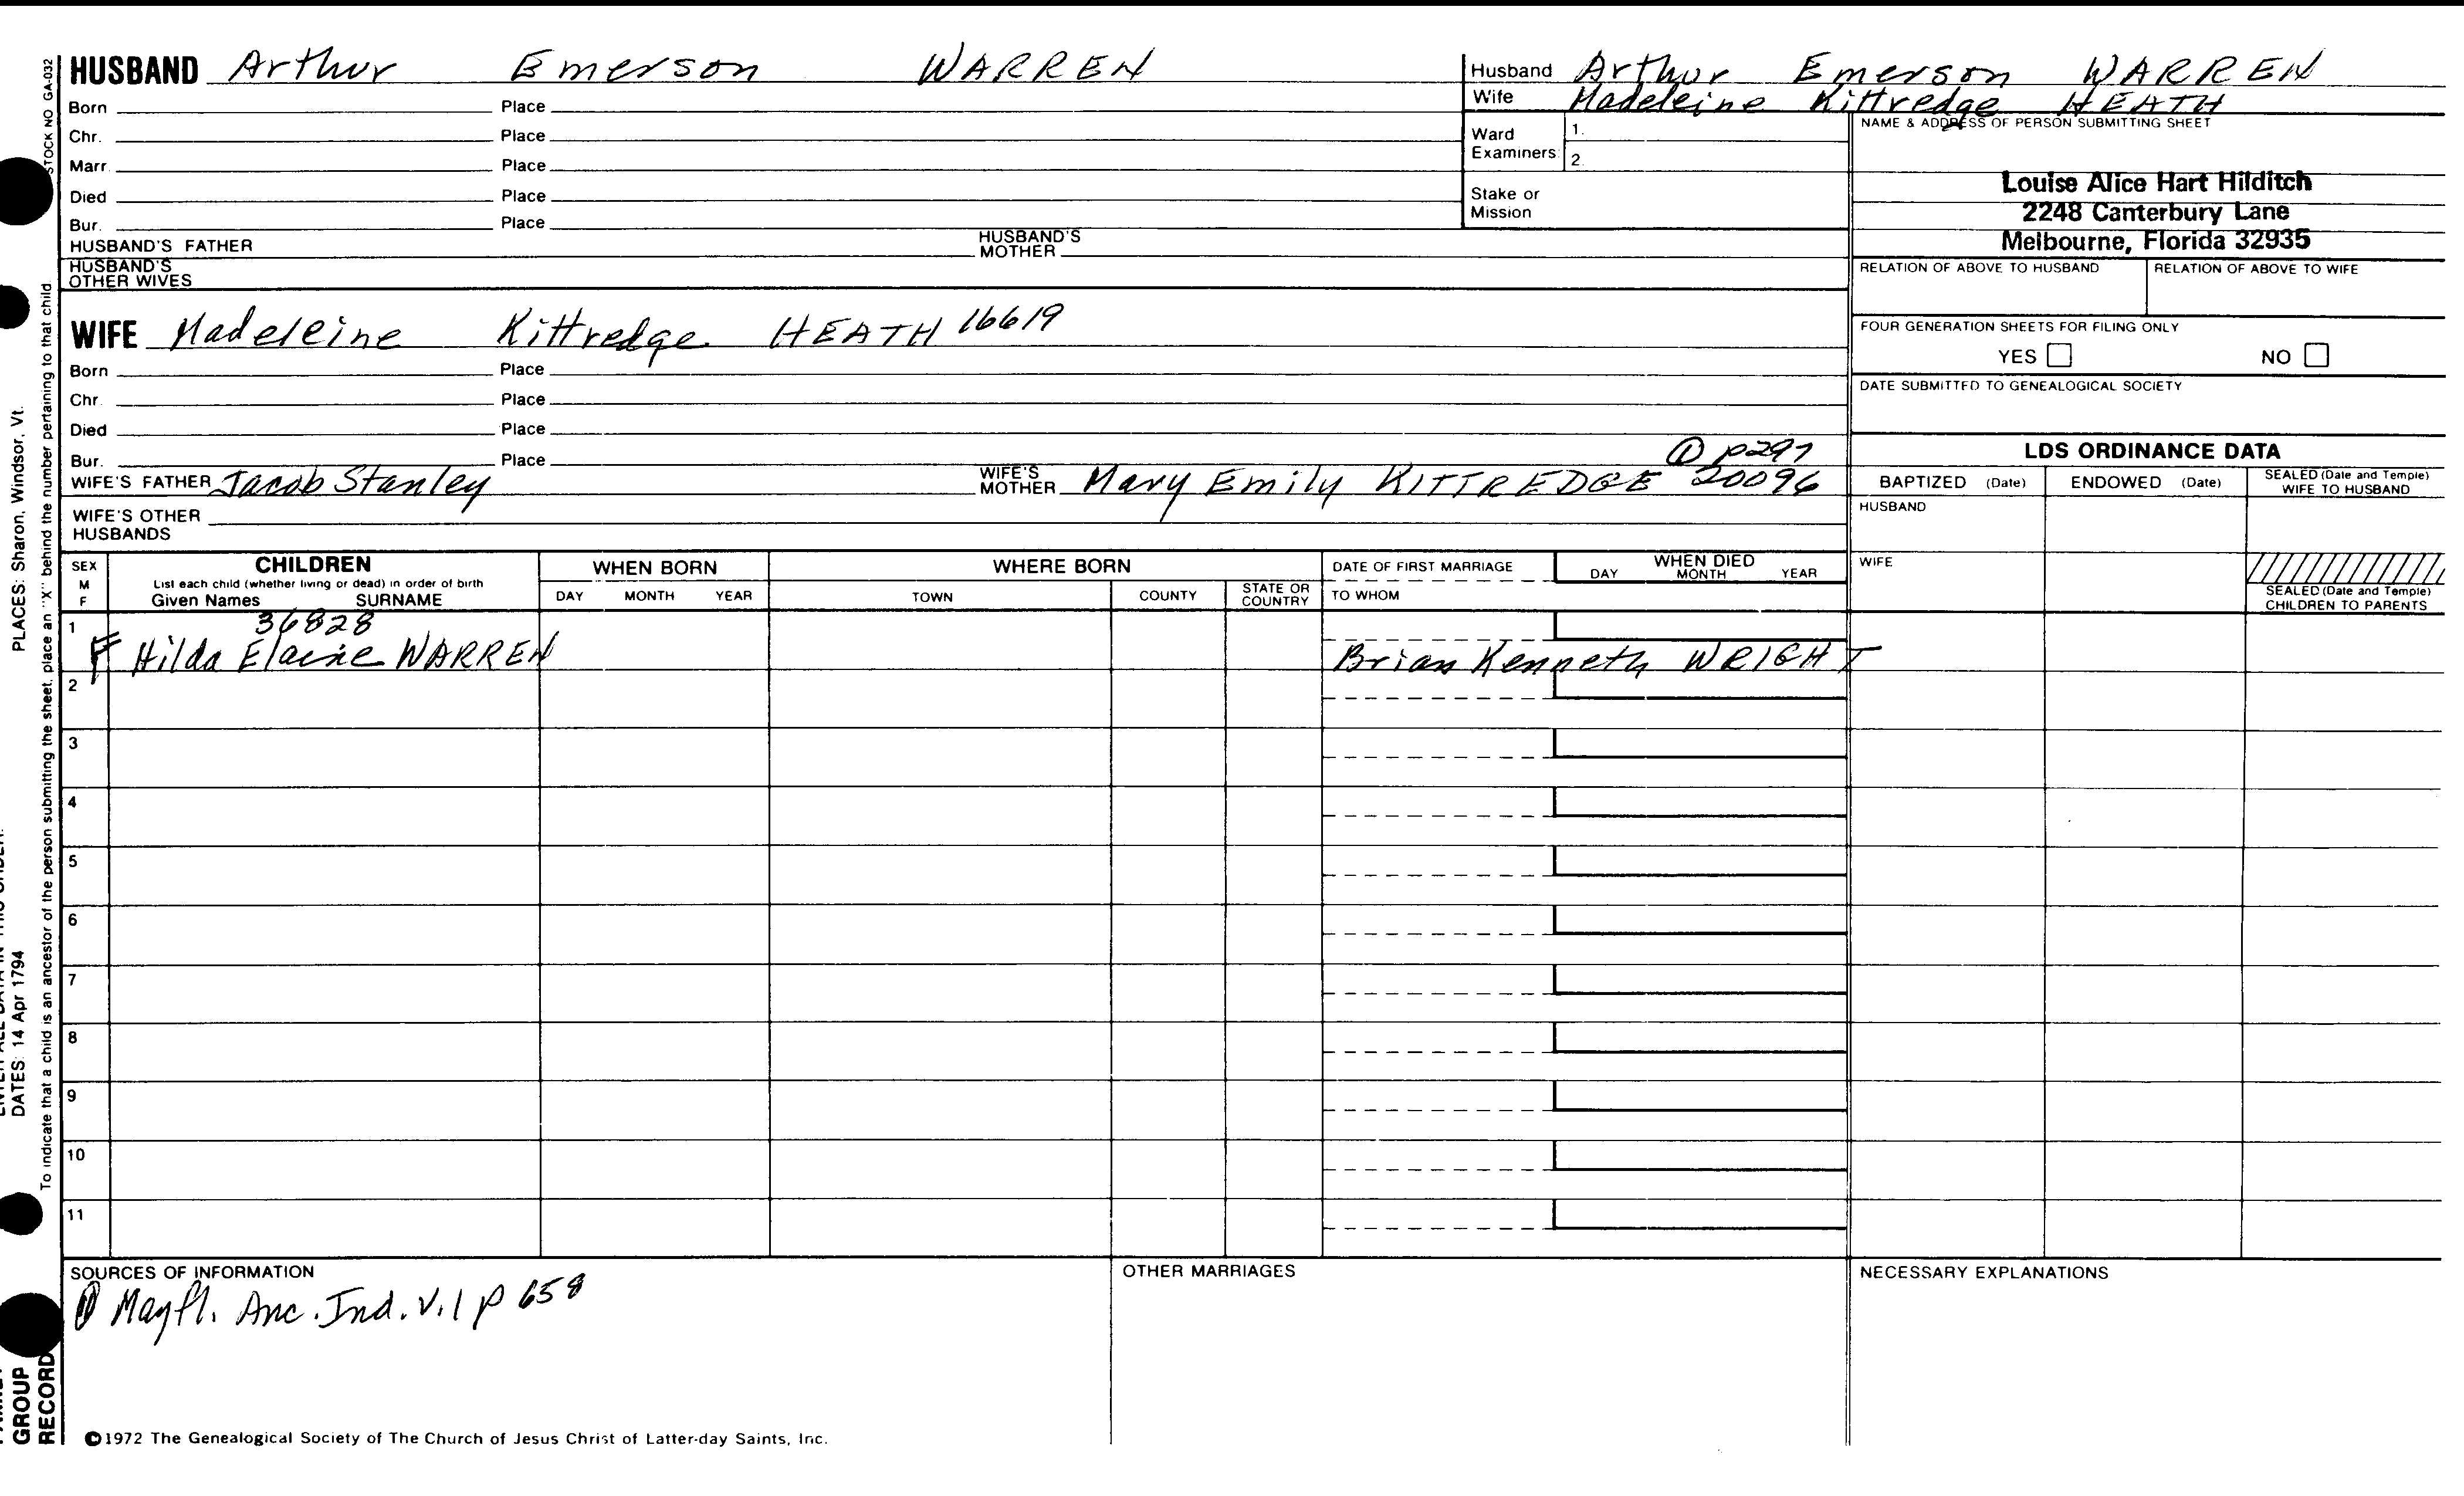 HUSBAND Arthur Emerson WARREN
Born Place
Chr. Place
Marr. Place
Died Place
Bur. Place
HUSBAND'S FATHER HUSBAND'S MOTHER
HUSBAND'S OTHER WIVES
WIFE Madeleine Kittredge HEATH 16619
Born Place
Chr. Place
Died Place
① p297
Bur. Place
WIFE'S FATHER Jacob Stanley WIFE'S MOTHER Mary Emily KITTREDGE 20096
WIFE'S OTHER HUSBANDS
Husband Arthur Emerson WARREN
Wife Madeleine Kittredge HEATH
Ward Examiners: 1.
2.
Stake or Mission
NAME & ADDRESS OF PERSON SUBMITTING SHEET
Louise Alice Hart Hilditch
2248 Canterbury Lane
Melbourne, Florida 32935
RELATION OF ABOVE TO HUSBAND RELATION OF ABOVE TO WIFE
FOUR GENERATION SHEETS FOR FILING ONLY
YES NO
DATE SUBMITTED TO GENEALOGICAL SOCIETY
LDS ORDINANCE DATA
BAPTIZED (Date) ENDOWED (Date) SEALED (Date and Temple) WIFE TO HUSBAND
HUSBAND
WIFE
SEALED (Date and Temple)
CHILDREN TO PARENTS
SEX M F
CHILDREN
List each child (whether living or dead) in order of birth
Given Names SURNAME
WHEN BORN
DAY MONTH YEAR
WHERE BORN
TOWN COUNTY STATE OR COUNTRY
DATE OF FIRST MARRIAGE
TO WHOM
WHEN DIED
DAY MONTH YEAR
1 36828
F Hilda Elaine WARREN Brian Kenneth WRIGHT
2
3
4
5
6
7
8
9
10
11
SOURCES OF INFORMATION
① Mayfl. Anc. Ind. V.1 p 658
OTHER MARRIAGES
NECESSARY EXPLANATIONS
©1972 The Genealogical Society of The Church of Jesus Christ of Latter-day Saints, Inc.
STOCK NO GA-032
To indicate that a child is an ancestor of the person submitting the sheet, place an "X" behind the number pertaining to that child
PLACES: Sharon, Windsor, Vt.
DATES: 14 Apr 1794
GROUP
RECORD